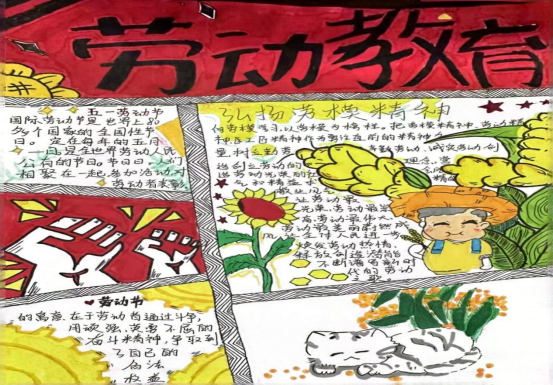 劳动教育
五一劳动节
国际劳动节是世界上80
多个国家的全国性节
日。定在每年的五月
一日是全世界劳动人民
公有的节日。节日日人们
相聚在一起参加活动对
劳动者表彰
弘扬劳模精神
向劳模学习以劳模为榜样。把劳模精神,劳动精
神
创业劳动的
让劳动最
光荣劳动最崇
高劳动最伟大
劳动最美丽蔚然成
风让全体人民进一步
焕发劳动热情,
释放创造潜能
不断谱写新时
代的劳动
劳动节
的意义在于劳动者通过斗争,
用顽强、英勇不屈的
奋斗精神,争取到
了自己的
合法
权益